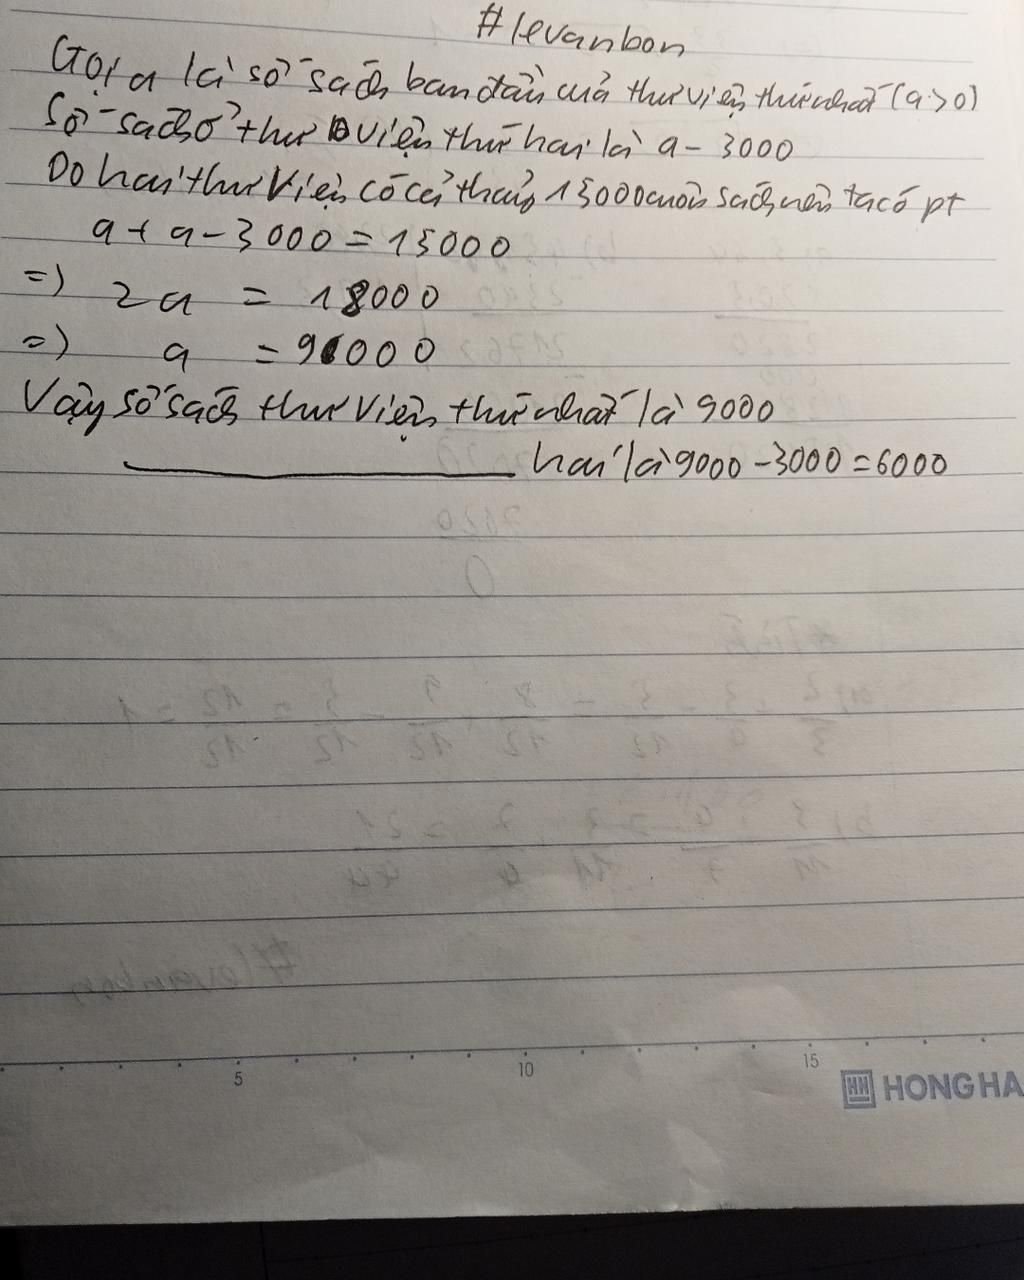 #levanbon
Gọi a là số sách ban đầu của thư viện thứ nhất (a>0)
Số sách ở thư viện thứ hai là a - 3000
Do hai thư viện có cả thảy 15000 cuốn sách nên ta có pt
a + a - 3000 = 15000
=) 2a = 18000
=) a = 9000
Vậy số sách thư viện thứ nhất là 9000
hai là 9000 - 3000 = 6000
5 10 15
HH HONG HA